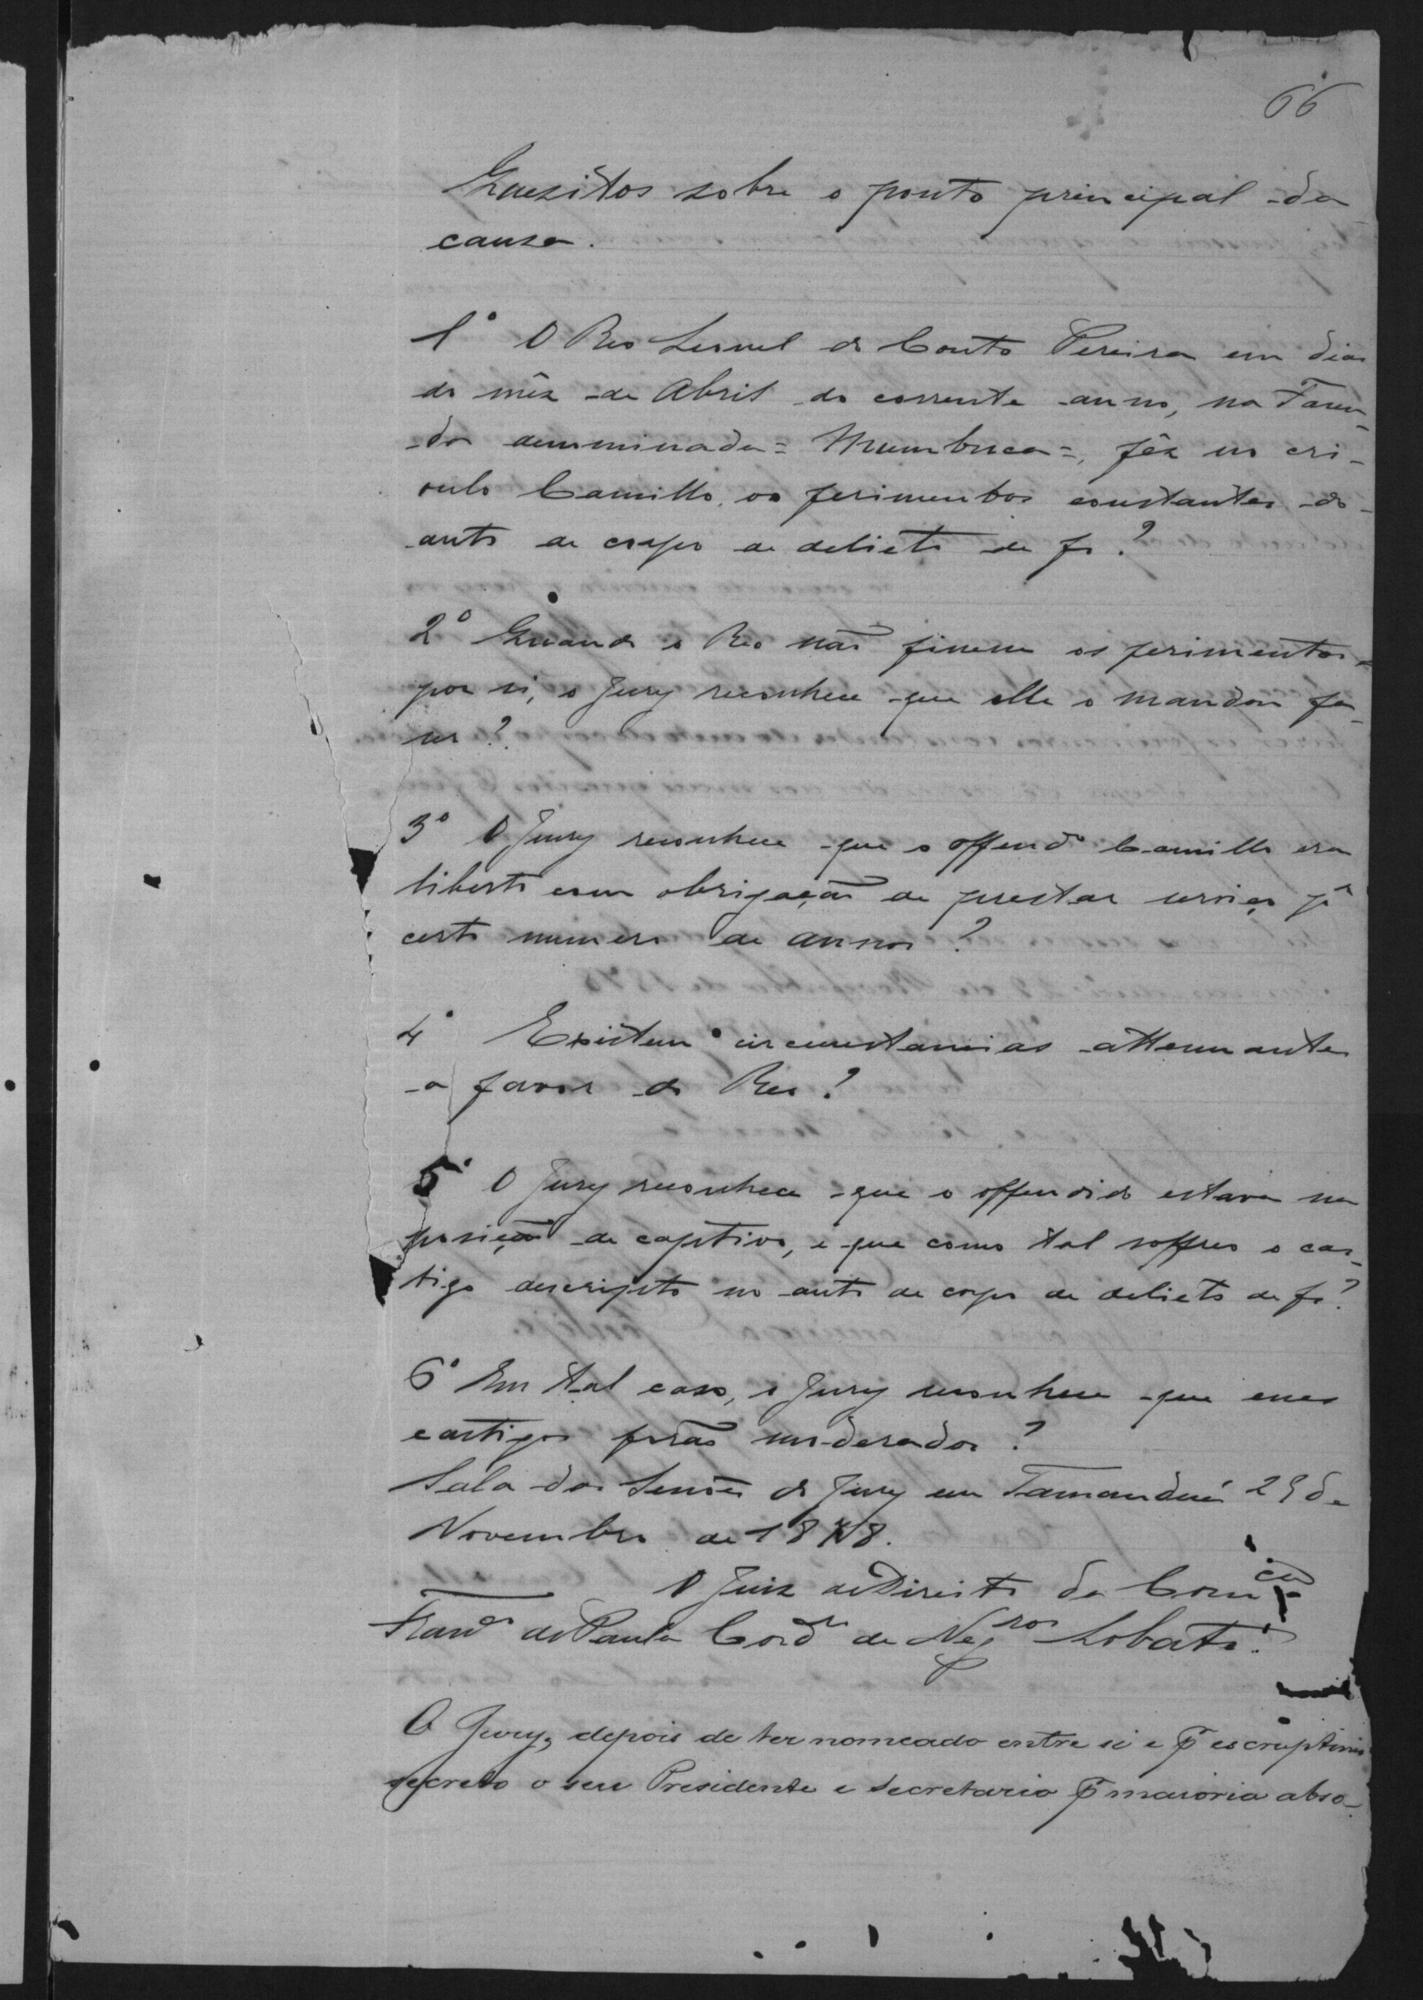 66
Quezitos sobre o ponto principal da
causa.
1º O Reo Lemuel do Couto Pereira em dias
do mêz de Abril do corrente anno, na Fazen-
da denominada = Mumbuca =, fêz no cri-
oulo Camillo, os ferimentos constantes do
auto de corpo de delicto de fs ?
2º Quando o Reo não fizesse os ferimentos
por si, o Jury reconhece que elle o mandou fa-
zer ?
3º O Jury reconhece que o offendº Camillo era
liberto com obrigação de prestar serviços pr
certo numero de annos ?
4º Existem circumstancias attenuantes
a favor do Reo ?
5º O Jury reconhece que o offendido estava na
posição de captivo, e que como tal soffreo o cas-
tigo descripto no auto de corpo de delicto de fs ?
6º Em tal caso, o Jury reconhece que esses
castigos forão moderados ?
Sala das Sessões do Jury em Tamanduá 29 de
Novembro de 1878.
O Juiz de Direito da Comca
Francº de Paula Cordrº de Negros Lobato.
O Jury, depois de ter nomeado entre si e p escruptinio
secreto o seu Presidente e Secretario p maioria abso-